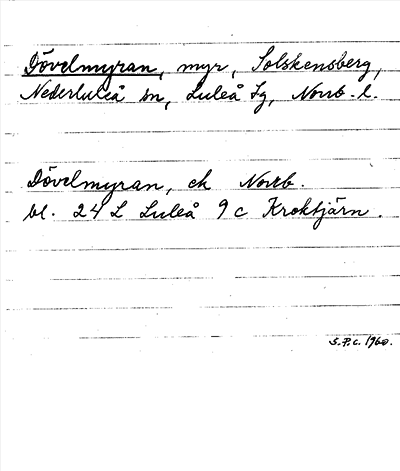 Dövelmyran, myr, Solskensberg,
Nederluleå sn, Luleå tg, Norrb. l.
Dövelmyran, ek Norrb.
bl. 24 L Luleå 9 c Kroktjärn.
S.P.C. 1960.